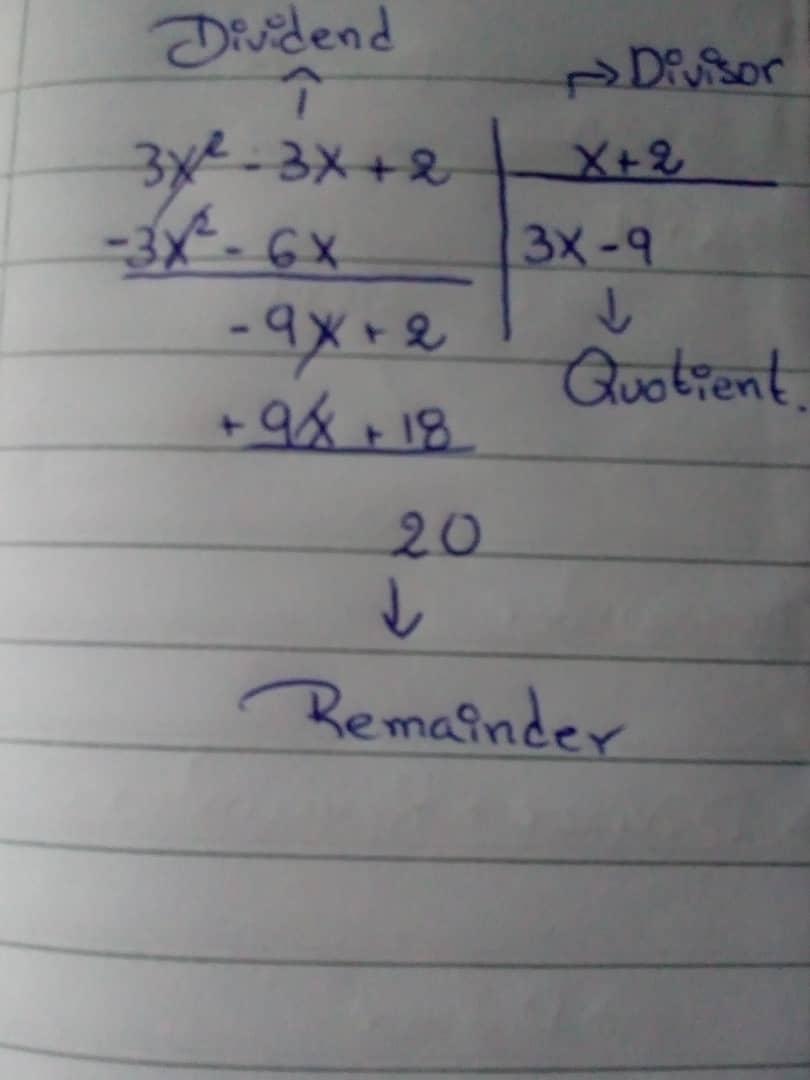 Dividend
→ Divisor
↑
3x² - 3x + 2 | x+2
-3x² - 6x | 3x - 9
-9x + 2
↓
Quotient.
+9x + 18
20
↓
Remainder